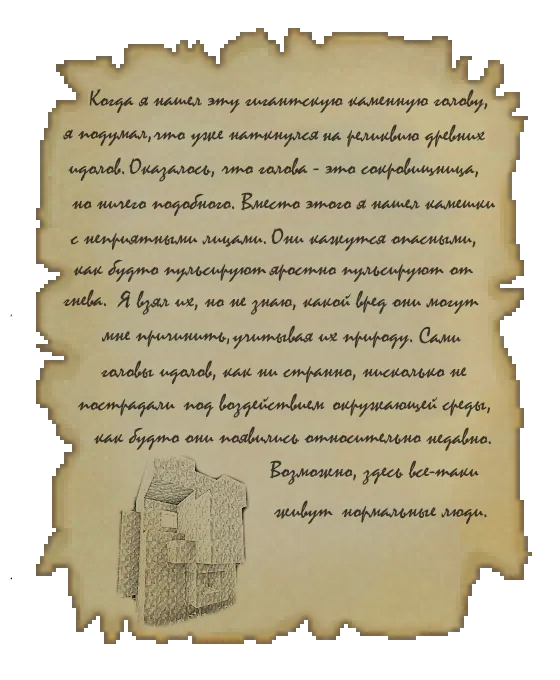 Когда я нашел эту гигантскую каменную голову,
я подумал, что уже наткнулся на реликвию древних
идолов. Оказалось, что голова - это сокровищница,
но ничего подобного. Вместо этого я нашел камешки
с неприятными лицами. Они кажутся опасными,
как будто пульсируют яростно пульсируют от
гнева. Я взял их, но не знаю, какой вред они могут
мне причинить, учитывая их природу. Сами
головы идолов, как ни странно, нисколько не
пострадали под воздействием окружающей среды,
как будто они появились относительно недавно.
Возможно, здесь все-таки
живут нормальные люди.